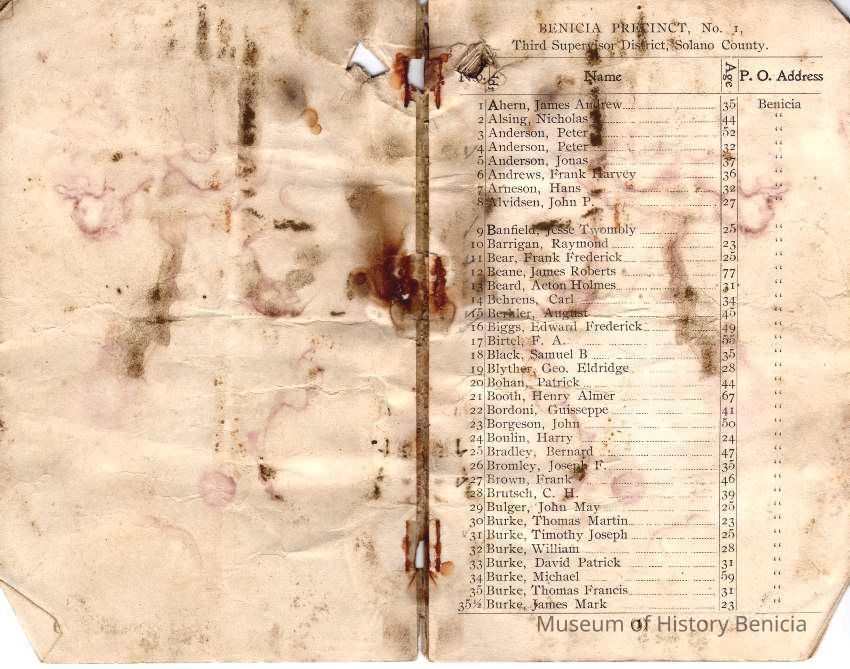 BENICIA PRECINCT, No. 1,
Third Supervisor District, Solano County.
No. Name Age P. O. Address
1 Ahern, James Andrew 35 Benicia
2 Alsing, Nicholas 44 "
3 Anderson, Peter 52 "
4 Anderson, Peter 32 "
5 Anderson, Jonas 37 "
6 Andrews, Frank Harvey 36 "
7 Arneson, Hans 32 "
8 Alvidsen, John P. 27 "
9 Banfield, Jesse Twombly 25 "
10 Barrigan, Raymond 23 "
11 Bear, Frank Frederick 25 "
12 Beane, James Roberts 77 "
13 Beard, Acton Holmes 31 "
14 Behrens, Carl 34 "
15 Berkler, August 45 "
16 Biggs, Edward Frederick 49 "
17 Birtel, F. A. 55 "
18 Black, Samuel B 35 "
19 Blyther, Geo. Eldridge 28 "
20 Bohan, Patrick 44 "
21 Booth, Henry Almer 67 "
22 Bordoni, Guisseppe 41 "
23 Borgeson, John 50 "
24 Boulin, Harry 24 "
25 Bradley, Bernard 47 "
26 Bromley, Joseph F. 35 "
27 Brown, Frank 46 "
28 Brutsch, C. H. 39 "
29 Bulger, John May 25 "
30 Burke, Thomas Martin 23 "
31 Burke, Timothy Joseph 25 "
32 Burke, William 28 "
33 Burke, David Patrick 31 "
34 Burke, Michael 59 "
35 Burke, Thomas Francis 31 "
35½ Burke, James Mark 23 "
Museum of History Benicia